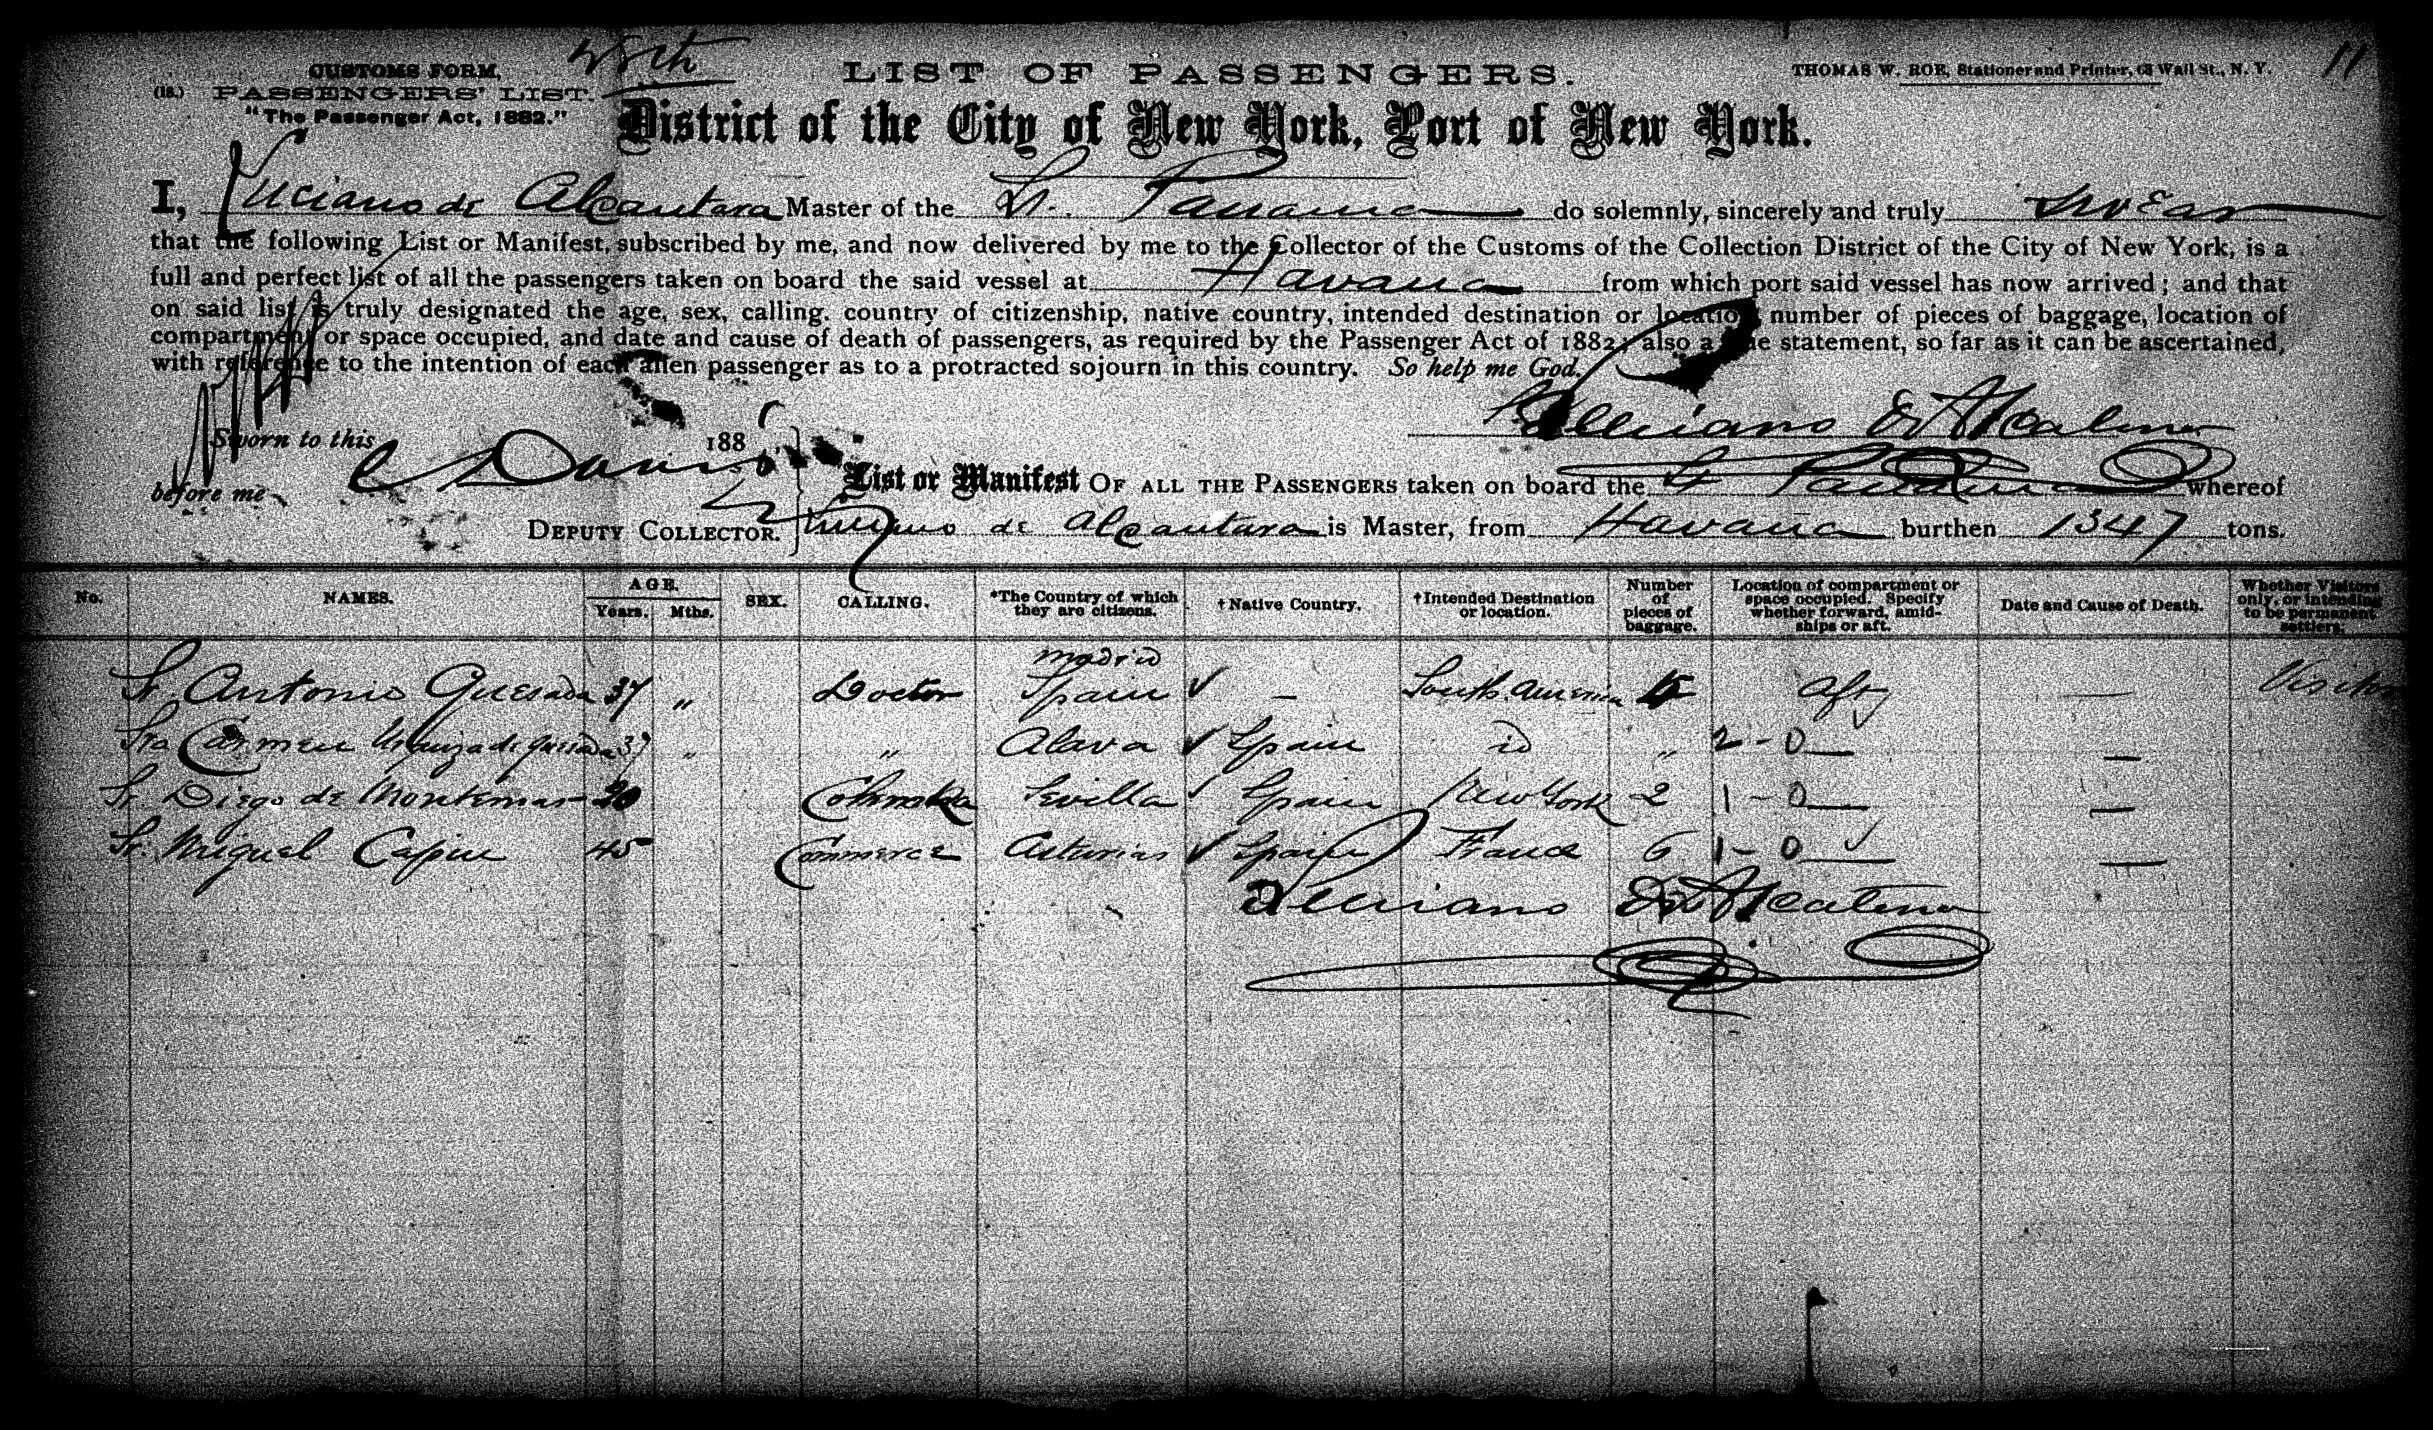 CUSTOMS FORM,
(18.) PASSENGERS' LIST.
"The Passenger Act, 1882."
LIST OF PASSENGERS.
THOMAS W. ROE, Stationer and Printer, 63 Wall St., N. Y.
11
District of the City of New York, Port of New York.
I, Luciano de Alcantara Master of the St. Panama do solemnly, sincerely and truly swear
that the following List or Manifest, subscribed by me, and now delivered by me to the Collector of the Customs of the Collection District of the City of New York, is a
full and perfect list of all the passengers taken on board the said vessel at Havana from which port said vessel has now arrived; and that
on said list is truly designated the age, sex, calling, country of citizenship, native country, intended destination or location number of pieces of baggage, location of
compartment or space occupied, and date and cause of death of passengers, as required by the Passenger Act of 1882; also a true statement, so far as it can be ascertained,
with reference to the intention of each alien passenger as to a protracted sojourn in this country. So help me God.
Sworn to this 188
before me
DEPUTY COLLECTOR.
List or Manifest OF ALL THE PASSENGERS taken on board the St Panama whereof
de Alcantara is Master, from Havana burthen 1347 tons.
No. NAMES. AGE. Years. Mths. SEX. CALLING. *The Country of which they are citizens. †Native Country. †Intended Destination or location. Number of pieces of baggage. Location of compartment or space occupied. Specify whether forward, amidships or aft. Date and Cause of Death. Whether Visitors only, or intending to be permanent settlers.
Madrid
Sr. Antonio Quesada 37 " Doctor Spain ✓ — South. America 15 aft — Visitor
Sra Carmen de Quesada 37 " " Alava ✓ Spain id " 2 - 0 —
Sr. Diego de Montemar 20 Sevilla ✓ Spain New York 2 1 - 0 —
Sr. Miguel 45 Commerce Asturias ✓ Spain France 6 1 - 0 ✓ —